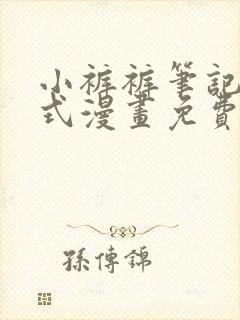 小裤裤筆記
式漫畫免費
孫傳錦